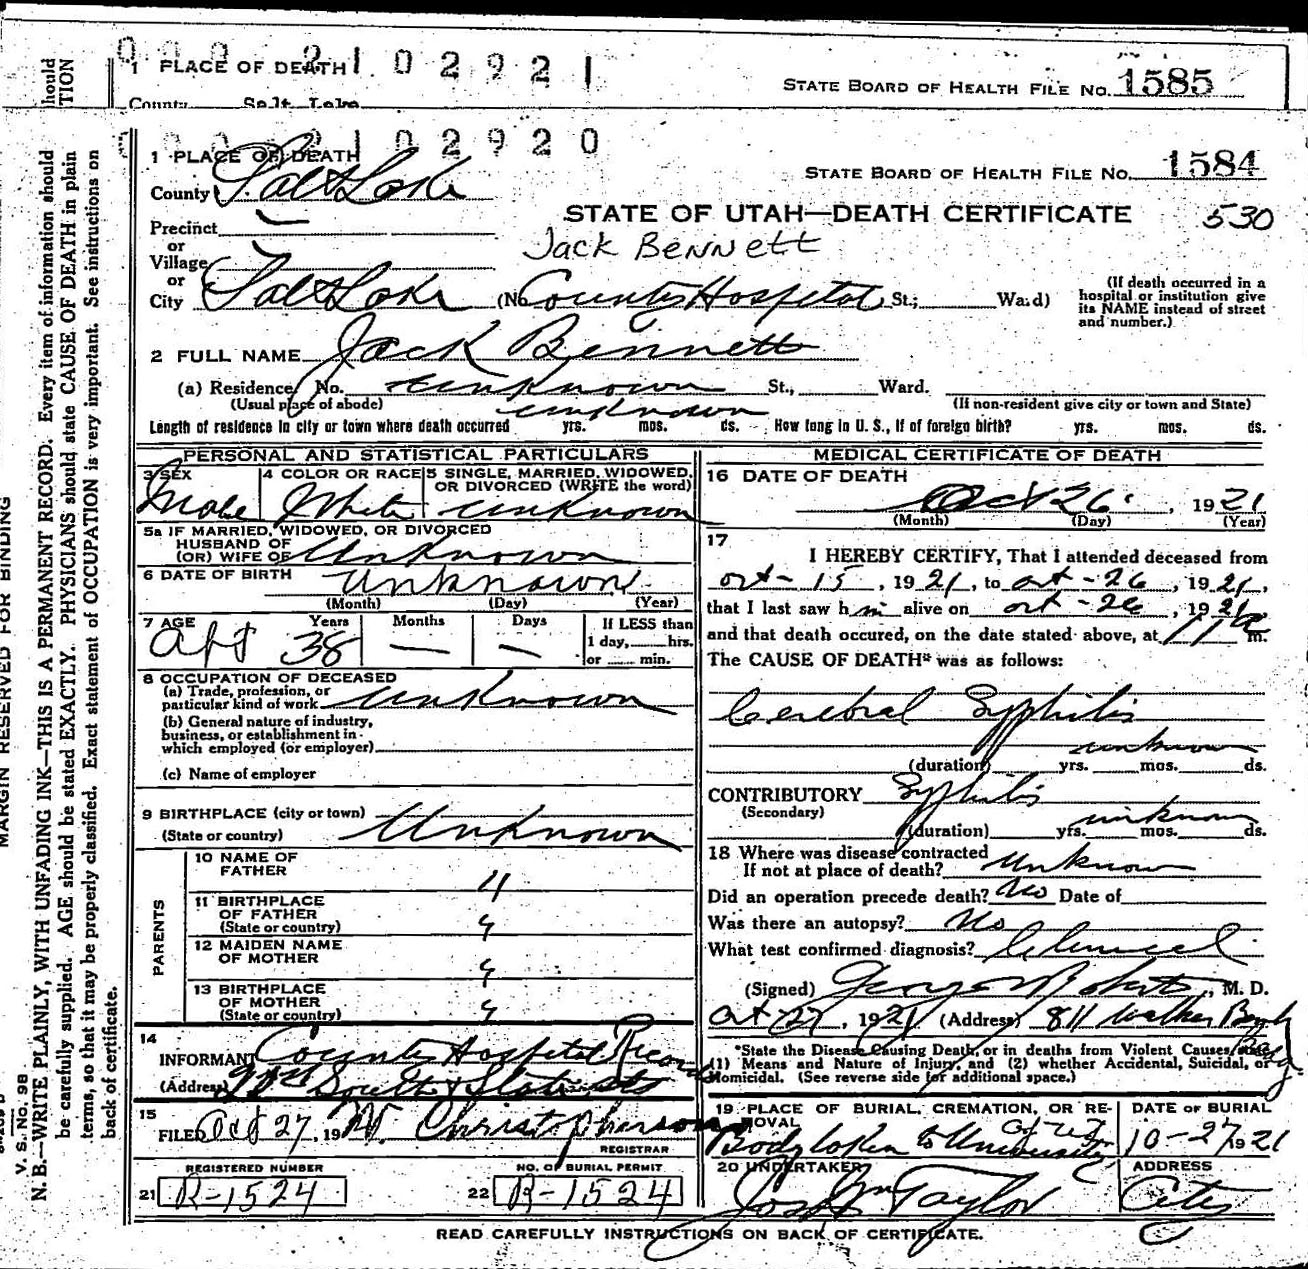 hould
TION
0 0 0 2 1 0 2 9 2 1
1 PLACE OF DEATH
STATE BOARD OF HEALTH FILE NO. 1585
County Salt Lake
0 0 0 2 1 0 2 9 2 0
1 PLACE OF DEATH
STATE BOARD OF HEALTH FILE No. 1584
County Salt Lake
STATE OF UTAH—DEATH CERTIFICATE 530
Precinct —
Jack Bennett
or
Village
or
City Salt Lake (No County Hospital St.; Ward)
(If death occurred in a
hospital or institution give
its NAME instead of street
and number.)
2 FULL NAME Jack Bennett
(a) Residence. No. unknown St., Ward.
(Usual place of abode) (If non-resident give city or town and State)
unknown
Length of residence in city or town where death occurred yrs. mos. ds. How long in U. S., if of foreign birth? yrs. mos. ds.
PERSONAL AND STATISTICAL PARTICULARS
3 SEX
Male
4 COLOR OR RACE
White
5 SINGLE, MARRIED, WIDOWED,
OR DIVORCED (WRITE the word)
unknown
5a IF MARRIED, WIDOWED, OR DIVORCED
HUSBAND OF
(OR) WIFE OF Unknown
6 DATE OF BIRTH unknown
(Month) (Day) (Year)
7 AGE Years Months Days If LESS than
1 day, hrs.
or min.
38 — —
8 OCCUPATION OF DECEASED
(a) Trade, profession, or
particular kind of work unknown
(b) General nature of industry,
business, or establishment in
which employed (or employer)
(c) Name of employer
9 BIRTHPLACE (city or town)
(State or country) Unknown
PARENTS
10 NAME OF
FATHER "
11 BIRTHPLACE
OF FATHER
(State or country) "
12 MAIDEN NAME
OF MOTHER "
13 BIRTHPLACE
OF MOTHER
(State or country) "
14
INFORMANT County Hospital Record
(Address) South & State sts
15
FILED Oct 27, 19 Christopherson
REGISTRAR
REGISTERED NUMBER
21 R-1524
NO. OF BURIAL PERMIT
22 R-1524
MEDICAL CERTIFICATE OF DEATH
16 DATE OF DEATH
Oct 26, 1921
(Month) (Day) (Year)
17
I HEREBY CERTIFY, That I attended deceased from
oct-15, 1921, to oct-26, 1921,
that I last saw him alive on oct-26, 1921,
and that death occured, on the date stated above, at 11 a m.
The CAUSE OF DEATH* was as follows:
Cerebral Syphilis
unknown
(duration) yrs. mos. ds.
CONTRIBUTORY Syphilis
(Secondary)
unknown
(duration) yrs. mos. ds.
18 Where was disease contracted
If not at place of death? Unknown
Did an operation precede death? No Date of
Was there an autopsy? No
What test confirmed diagnosis? Clinical
(Signed) George Roberts, M. D.
Oct-27, 1921 (Address) 811 Walker Bank
Bldg
*State the Disease Causing Death, or in deaths from Violent Causes, state
(1) Means and Nature of Injury, and (2) whether Accidental, Suicidal, or
Homicidal. (See reverse side for additional space.)
19 PLACE OF BURIAL, CREMATION, OR RE-
MOVAL
Body taken to University of Ut
DATE OF BURIAL
10-27 1921
20 UNDERTAKER
Jos Wm Taylor
ADDRESS
City
READ CAREFULLY INSTRUCTIONS ON BACK OF CERTIFICATE.
MARGIN RESERVED FOR BINDING
V. S. No. 98
N. B.—WRITE PLAINLY, WITH UNFADING INK—THIS IS A PERMANENT RECORD. Every item of information should
be carefully supplied. AGE should be stated EXACTLY. PHYSICIANS should state CAUSE OF DEATH in plain
terms, so that it may be properly classified. Exact statement of OCCUPATION is very important. See instructions on
back of certificate.